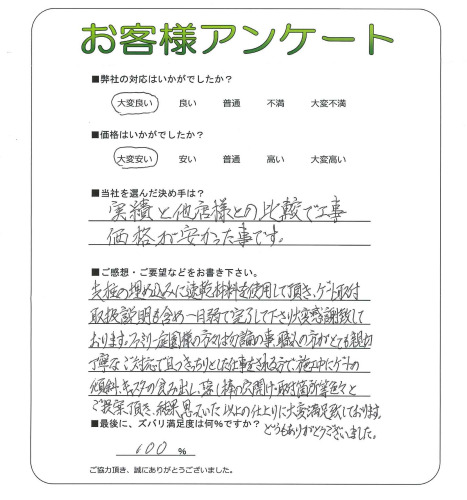 お客様アンケート
■弊社の対応はいかがでしたか?
大変良い 良い 普通 不満 大変不満
■価格はいかがでしたか?
大変安い 安い 普通 高い 大変高い
■当社を選んだ決め手は?
実績と他店様との比較で工事
価格が安かった事です。
■ご感想・ご要望などをお書き下さい。
支柱の埋め込みに速乾材料を使用して頂き、ゲート取付
取扱説明も含め一日弱で完了して下さり大変感謝致して
おります。ファミリー庭園様の方々は勿論の事、職人の方がとても親切
丁寧なご対応で且つきっちりとした仕事をされる方で、施工中にゲートの
傾斜、キャスターの食み出し、落し棒の穴開け・取付箇所等色々と
ご提案頂き、結果、思っていた以上の仕上りに大変満足致しております。
どうもありがとうございました。
■最後に、ズバリ満足度は何%ですか?
100 %
ご協力頂き、誠にありがとうございました。